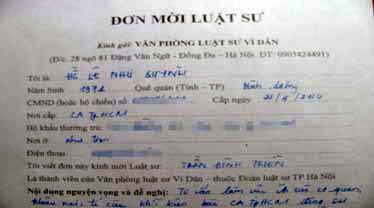 ĐƠN MỜI LUẬT SƯ
Kính gửi: VĂN PHÒNG LUẬT SƯ VÌ DÂN
(Đ/c. 28 ngõ 81 Đặng Văn Ngữ - Đống Đa - Hà Nội. ĐT: 0903424491)
Tôi là: Hồ Lê Như Quỳnh
Năm Sinh 1972 Quê quán (Tỉnh - TP)
CMND (hoặc hộ chiếu) số: Cấp ngày 25/4/2010
Nơi cấp: CA TpHCM
Hộ khẩu thường trú:
Nơi ở: như trên
Điện thoại:
Tôi viết đơn này kính mời Luật sư: TRẦN ĐÌNH TRIỂN
Là thành viên của Văn phòng luật sư Vì Dân - thuộc Đoàn luật sư TP Hà Nội
Nội dung nguyện vọng và đề nghị: Tư vấn, làm việc với các cơ quan,
khiếu nại, tố cáo, khởi kiện CA TpHCM